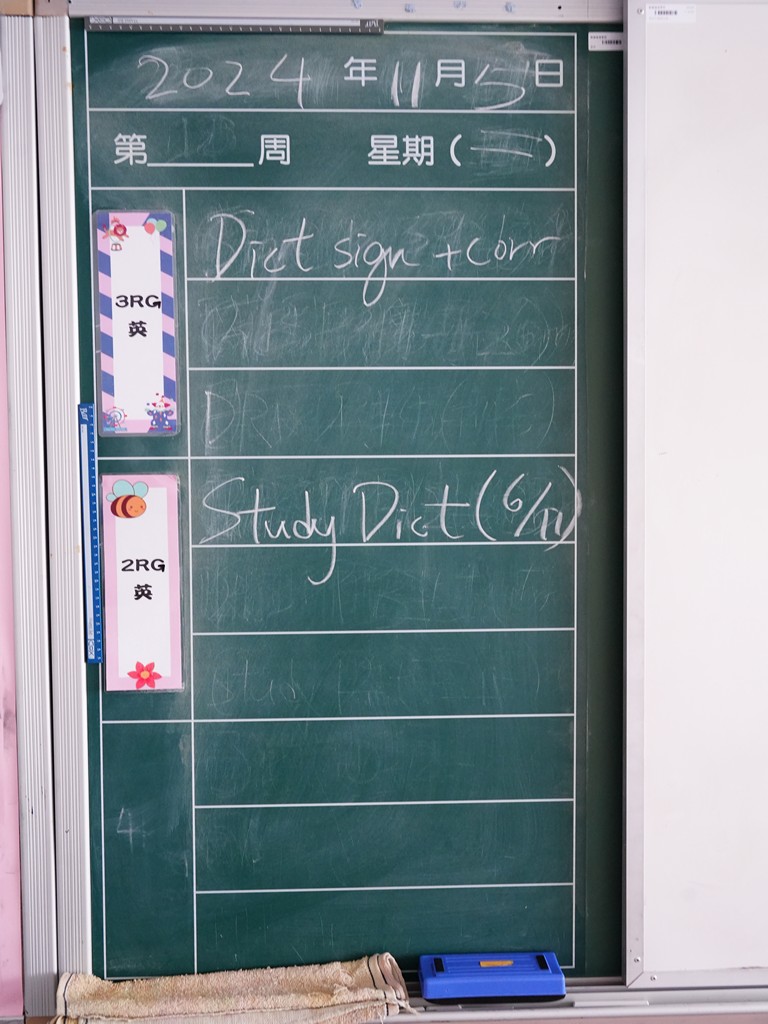 2024 年 11 月 5 日
第 周 星期 ( 二 )
3RG
英
Dict sign + corr
2RG
英
Study Dict (6/11)
4